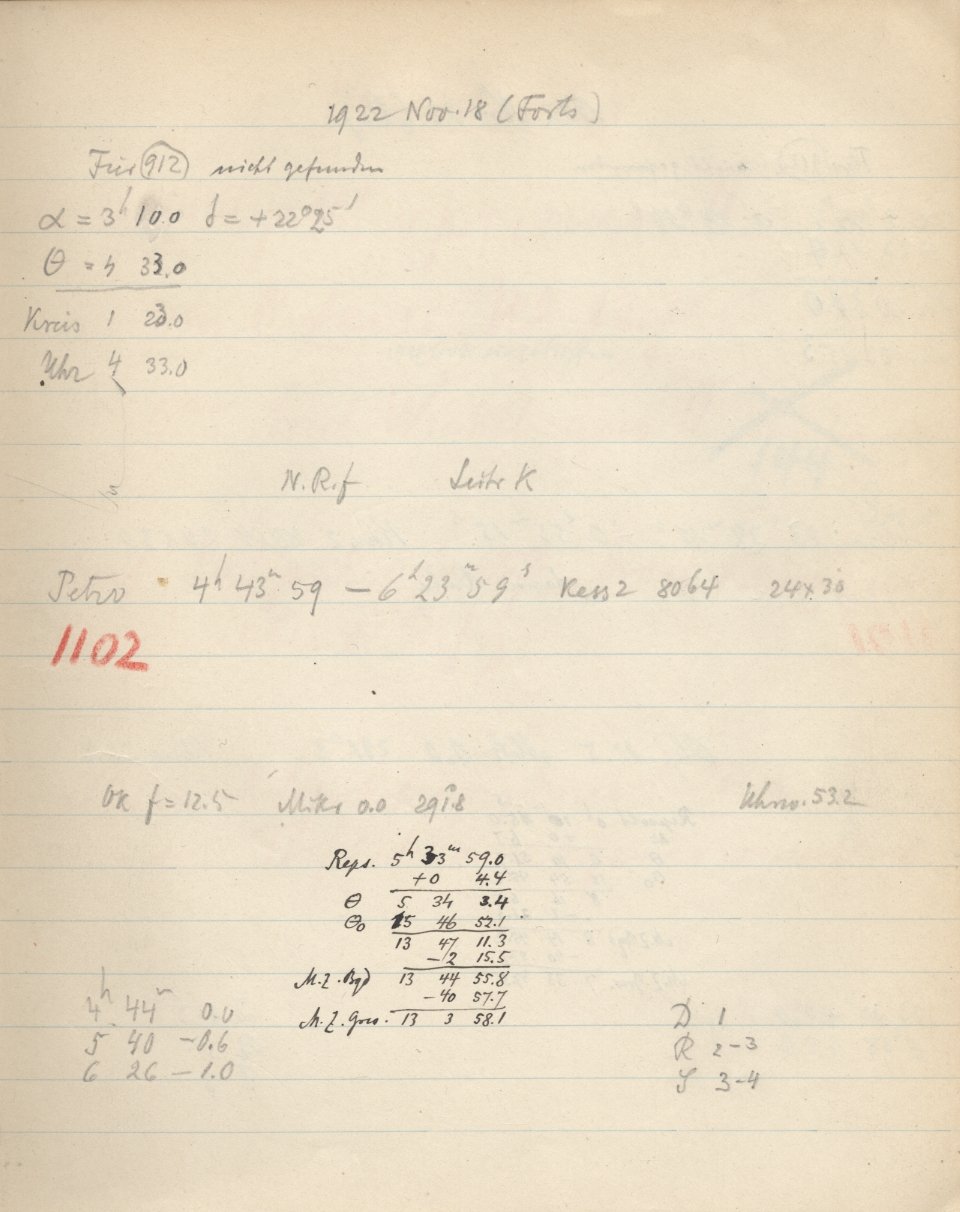 1922 Nov. 18 (Forts)
Für 912 nicht gefunden
α = 3h 10.0 δ = +22°25'
θ = 4 33.0
Kreis 1 23.0
Uhr 4 33.0
N.R.f Leitr K
Petro 4h 43m 59 – 6h 23m 59s Kess 2 8064 24x30
1102
OK f = 12.5 Mikr 0.0 29.8 Uhrw. 53.2
Reps. 5h 33m 59.0
+0 4.4
θ 5 34 3.4
θ0 15 46 52.1
13 47 11.3
–2 15.5
M.Z.Bgd 13 44 55.8
–40 57.7
M.Z.Grw. 13 3 58.1
4h 44m 0.0
5 40 –0.6
6 26 –1.0
D 1
R 2–3
S 3–4